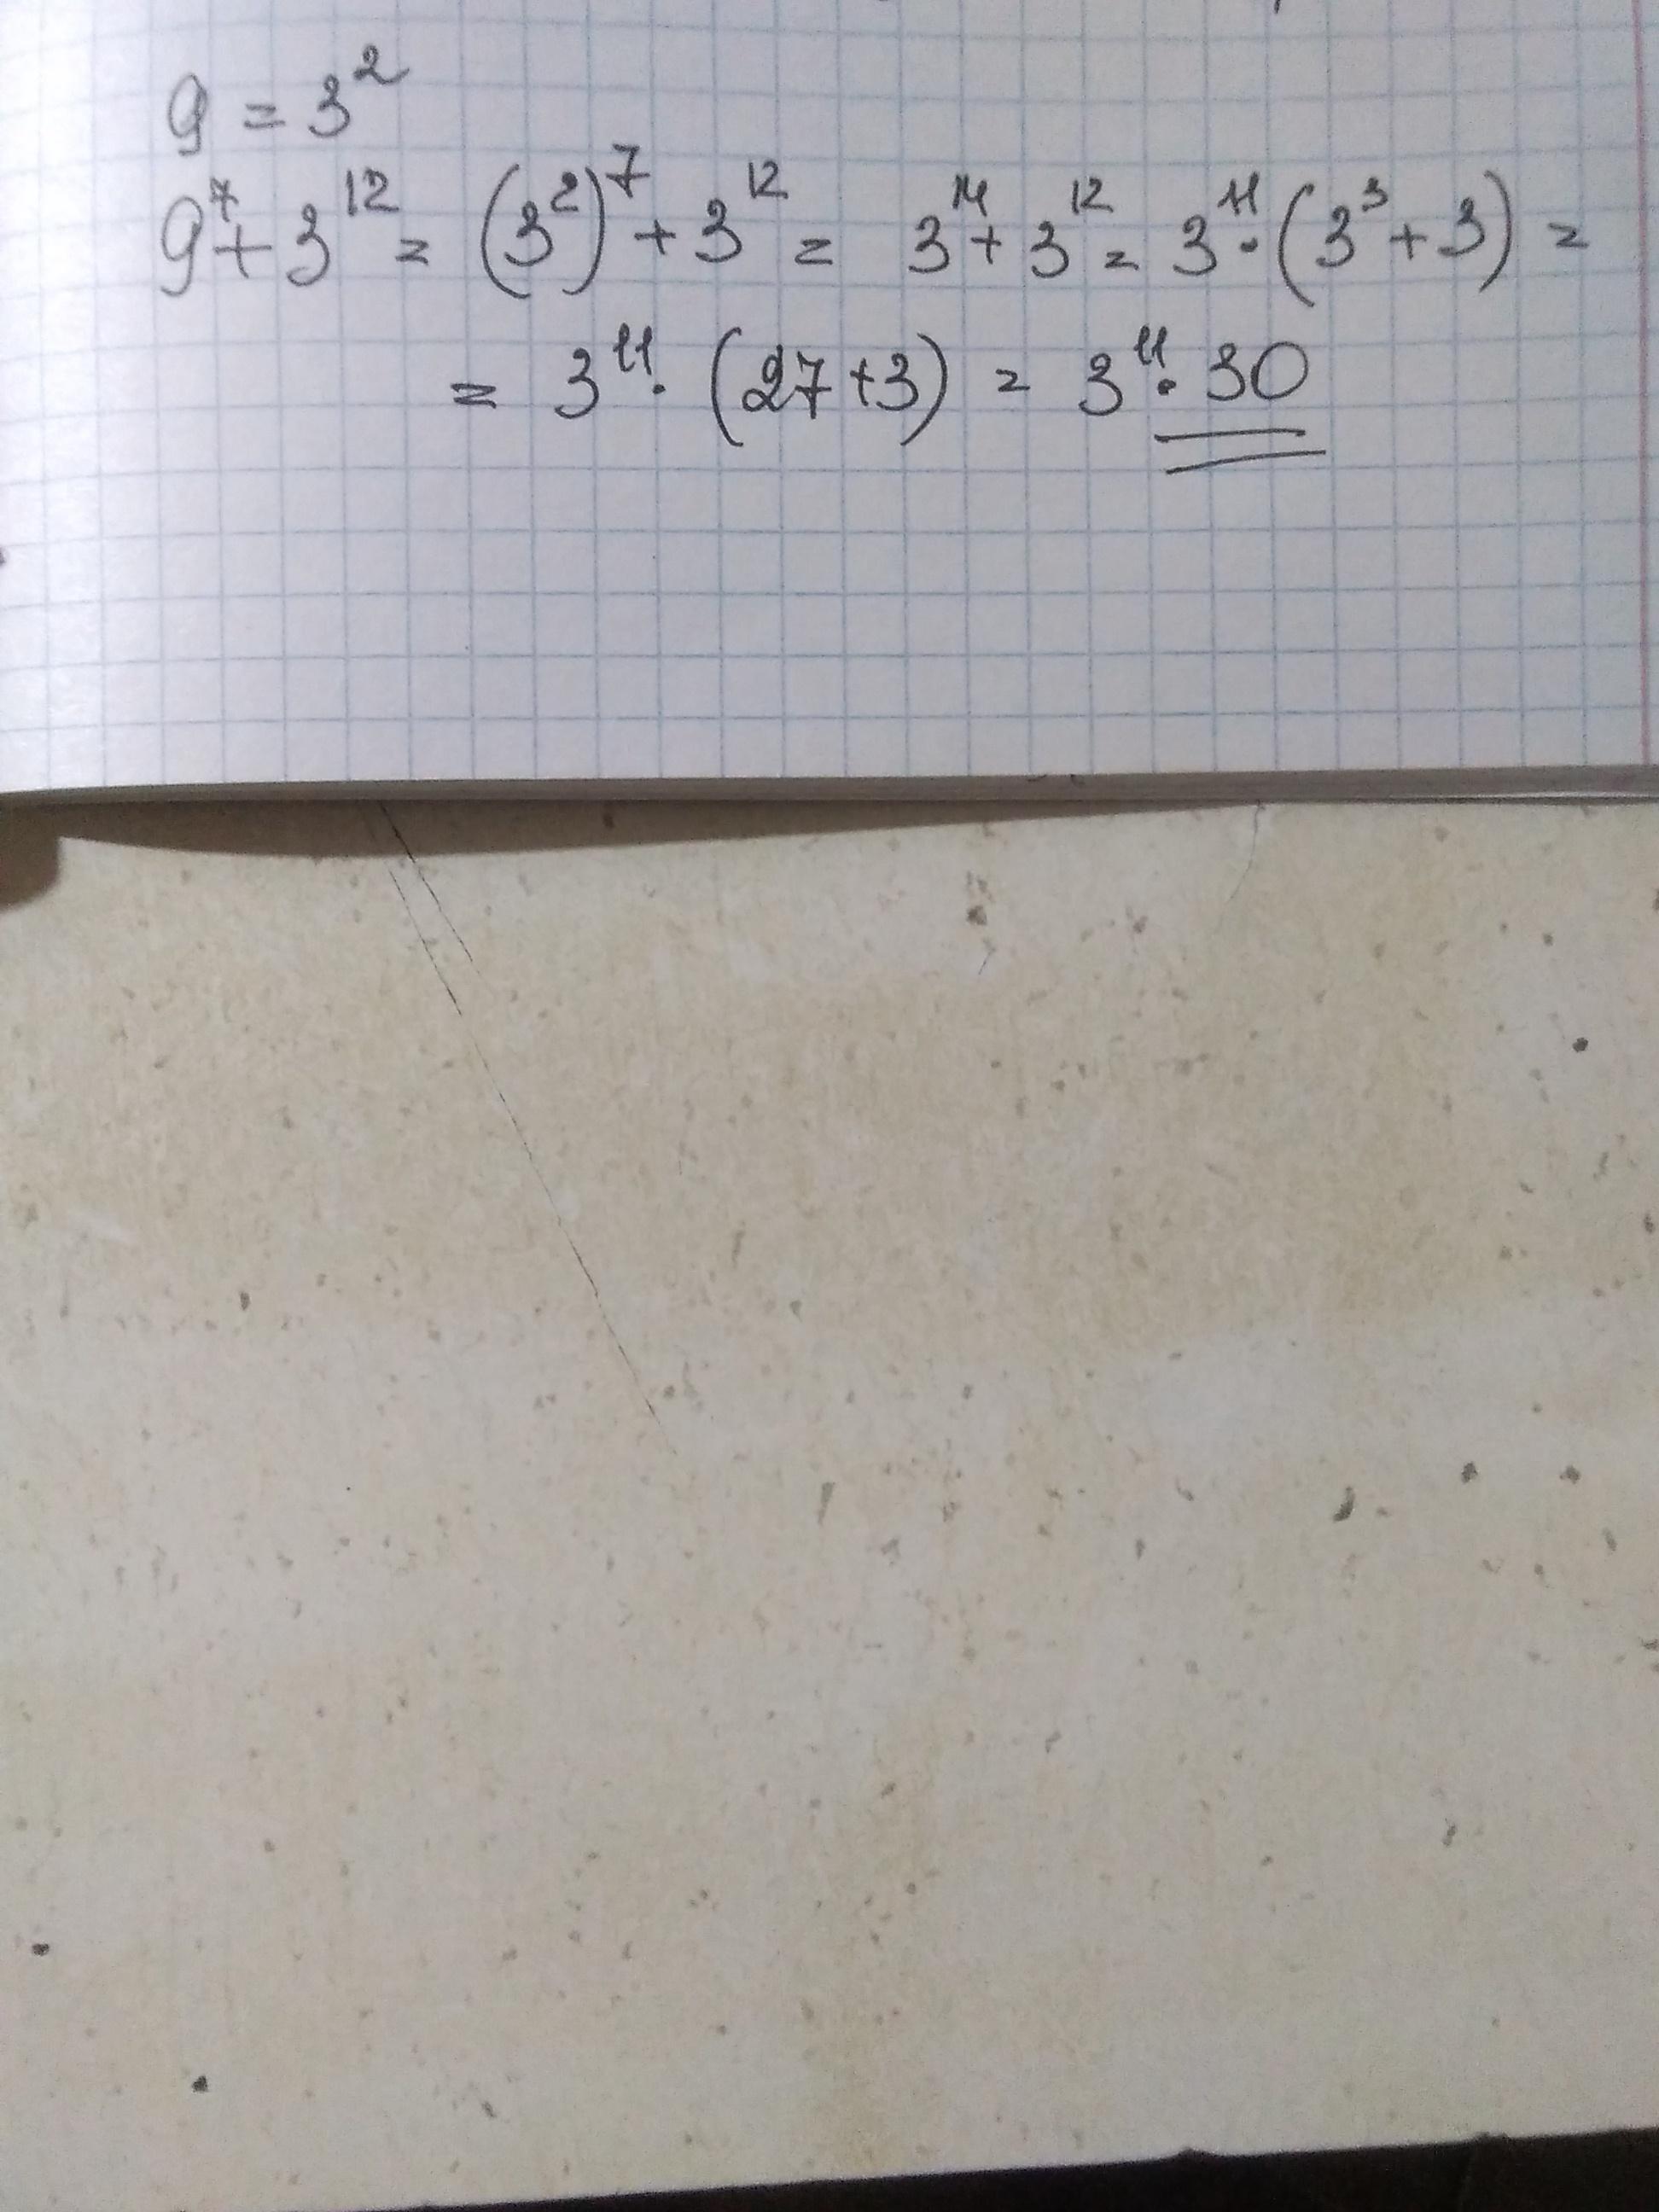 9 = 3²
9⁷ + 3¹² = (3²)⁷ + 3¹² = 3¹⁴ + 3¹² = 3¹¹ · (3³ + 3) =
= 3¹¹ · (27 + 3) = 3¹¹ · 30